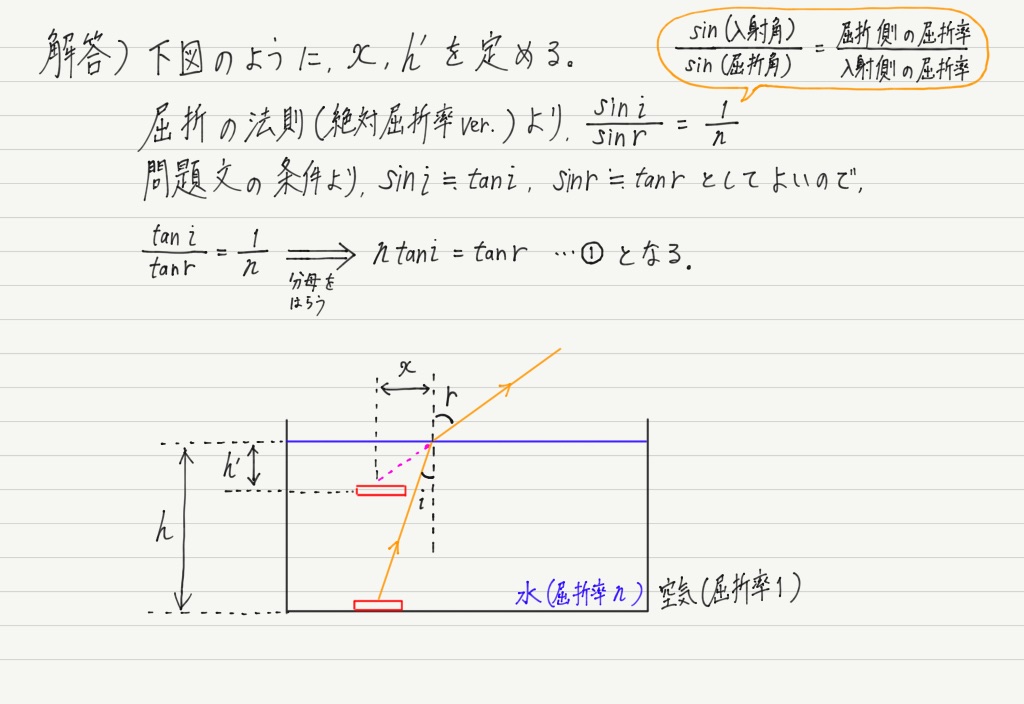 解答) 下図のように, x, h' を定める。
sin(入射角)/sin(屈折角) = 屈折側の屈折率/入射側の屈折率
屈折の法則(絶対屈折率ver.)より, sin i/sin r = 1/n
問題文の条件より, sin i ≒ tan i, sin r ≒ tan r としてよいので,
tan i/tan r = 1/n ⟹ n tan i = tan r …① となる.
分母を
はらう
x
r
h'
i
h
水(屈折率n) 空気(屈折率1)